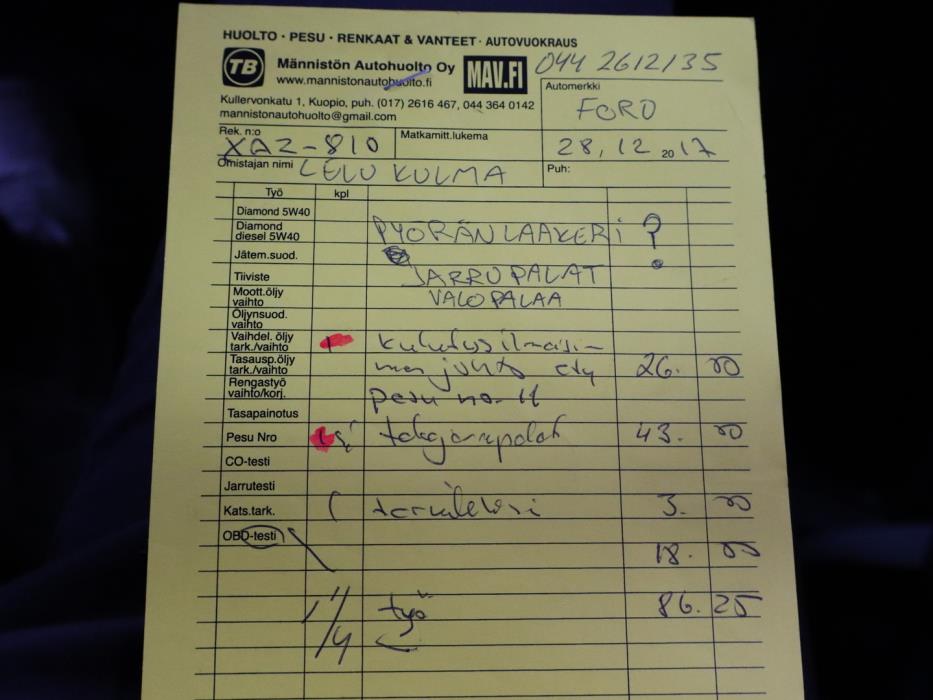 HUOLTO · PESU · RENKAAT & VANTEET · AUTOVUOKRAUS
TB Männistön Autohuolto Oy MAV.FI 044 2612135
www.mannistonautohuolto.fi
Kullervonkatu 1, Kuopio, puh. (017) 2616 467, 044 364 0142
mannistonautohuolto@gmail.com
Automerkki
FORD
Rek. n:o Matkamitt.lukema
XAZ-810 28, 12 2017
Omistajan nimi LELU KULMA Puh:
Työ kpl
Diamond 5W40
Diamond
diesel 5W40 PYÖRÄNLAAKERI ?
Jätem.suod.
Tiiviste JARRUPALAT
Moott.öljy
vaihto VALOPALAA
Öljynsuod.
vaihto
Vaihdel. öljy
tark./vaihto 1 kulutusilmaisi-
Tasausp.öljy
tark./vaihto men johto 26. 00
Rengastyö
vaihto/korj. pesu
Tasapainotus
Pesu Nro takajarrupalat 43. 00
CO-testi
Jarrutesti
Kats.tark. 3. 00
OBD-testi
18. 00
1 1/4 työ 86. 25